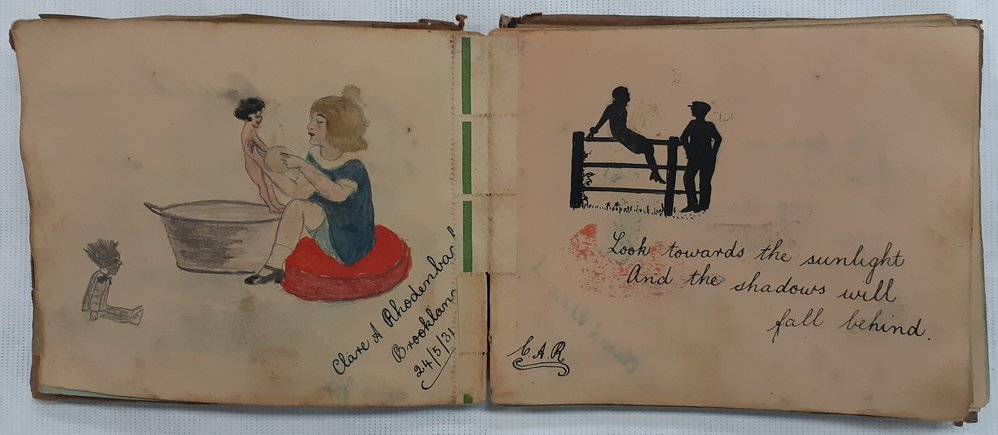 Clare A Rhodenbach
Brooklands
24/5/31
Look towards the sunlight
And the shadows will
fall behind.
C.A.R